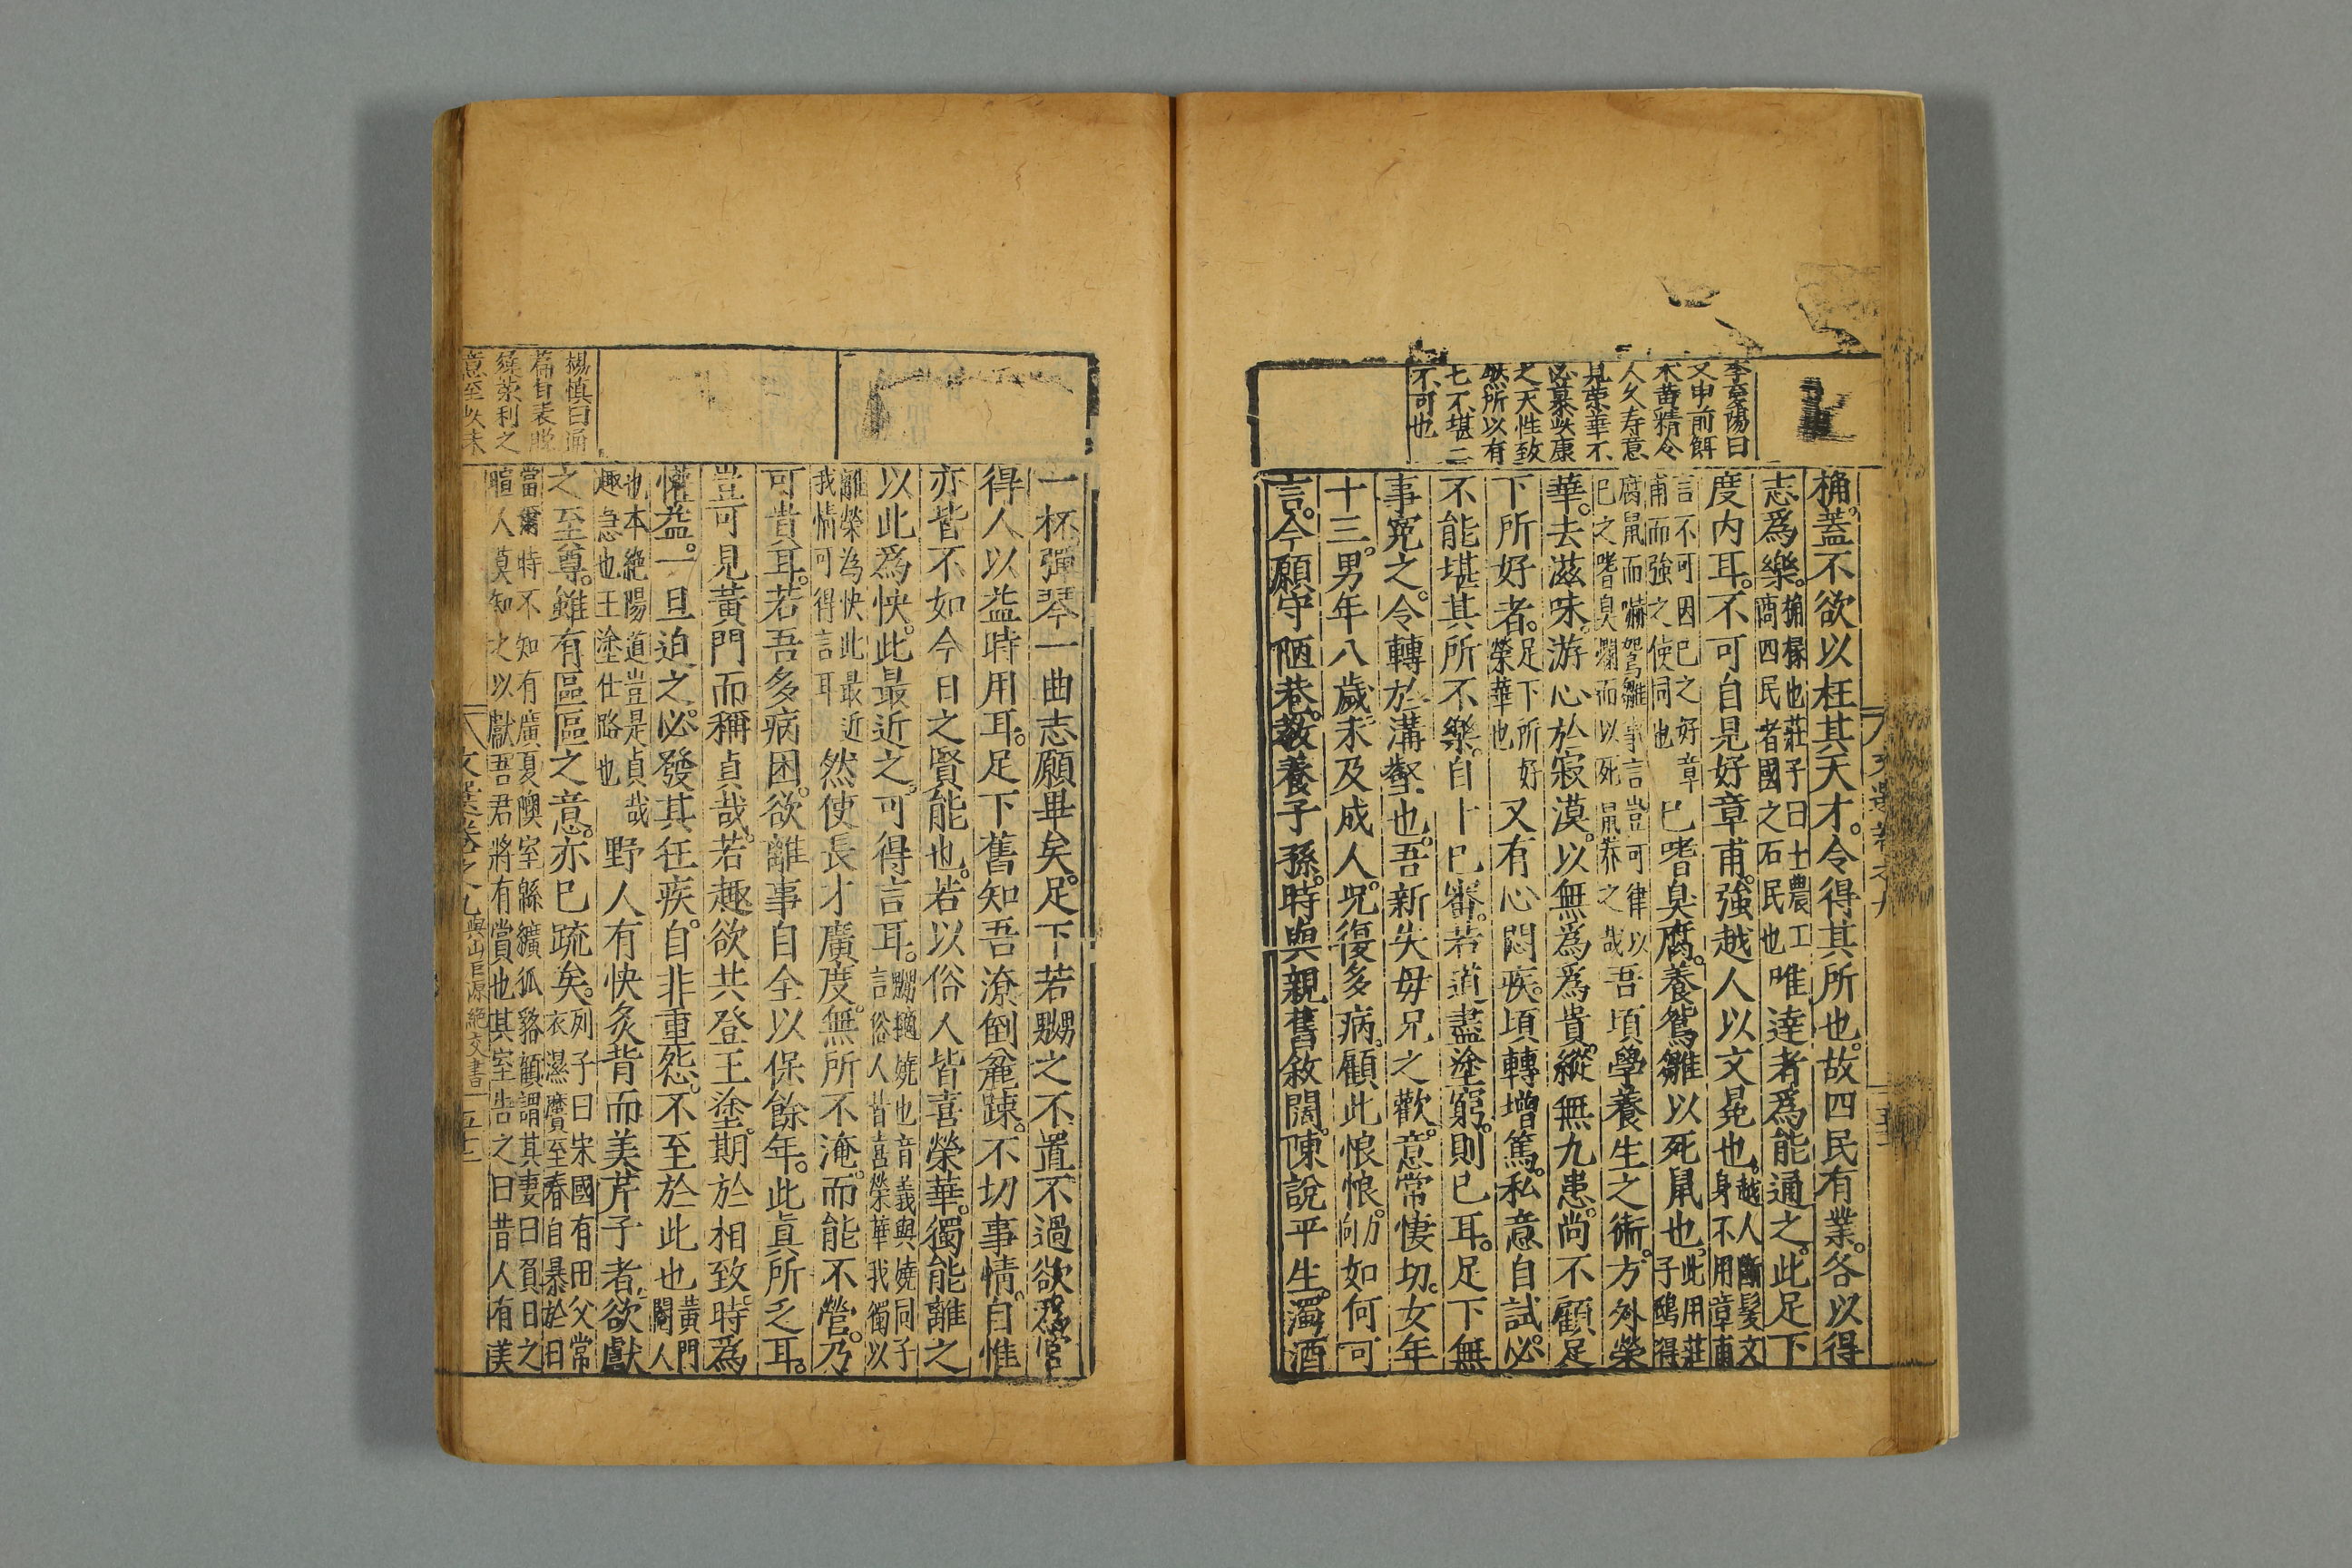 李夏陽曰
又申前餌
朮黄精令
人久寿意
見荣華不
必慕此康
之天性致
然所以有
七不堪二
不可也
桷。蓋不欲以枉其天才。令得其所也。故四民有業。各以得
志爲樂。桷榱也莊子曰士農工商四民者國之石民也唯達者爲能通之。此足下
度內耳。不可自見好章甫。強越人以文冕也。越人斷髮文身不用章甫
言不可因已之好章甫而強之使同也已嗜臭腐。養鴛雛以死鼠也。此用莊子鴟得
腐鼠而嚇鴛雛事言豈可律以已之嗜臭爛而以死鼠养之哉吾頃學養生之術。方外榮
華。去滋味。游心於寂漠。以無爲爲貴。縱無九患。尚不顧足
下所好者。足下所好榮華也又有心悶疾。頃轉增篤。私意自試。必
不能堪其所不樂。自卜已審。若道盡塗窮。則已耳。足下無
事寃之。令轉於溝壑也。吾新失母兄之歡。意常悽切。女年
十三。男年八歲。未及成人。况復多病。顧此悢悢。如何可
言。今願守陋巷。教養子孫。時與親舊敘闊。陳說平生。濁酒
一杯。彈琴一曲志願畢矣。足下若嬲之不置不過欲爲官
得人以益時用耳。足下舊知吾潦倒麄踈。不切事情。自惟
亦皆不如今日之賢能也。若以俗人皆喜榮華。獨能離之
以此爲快。此最近之。可得言耳。嬲擿嬈也音義與嬈同子言俗人皆喜榮華我獨以
離榮为快此最近我情可得言耳然使長才廣度。無所不淹。而能不營。乃
可貴耳。若吾多病困。欲離事自全以保餘年。此眞所乏耳。
豈可見黃門而稱貞哉。若趣欲共登王塗。期於相致。時爲
懽益。一旦迫之。必發其狂疾。自非重怨。不至於此也黃門閹人
也本絶陽道豈是貞哉趣急也王塗仕路也野人有快炙背而美芹子者。欲獻
之至尊。雖有區區之意。亦已疏矣。列子曰宋國有田父常衣濕黂至春自暴於日
當爾時不知有廣夏隩室緜纊狐貉顧謂其妻曰負日之暄人莫知之以獻吾君將有賞也其室告之曰昔人有美
楊慎曰通
篇自表晚
文選卷之九 與山巨源絶交書 五十二